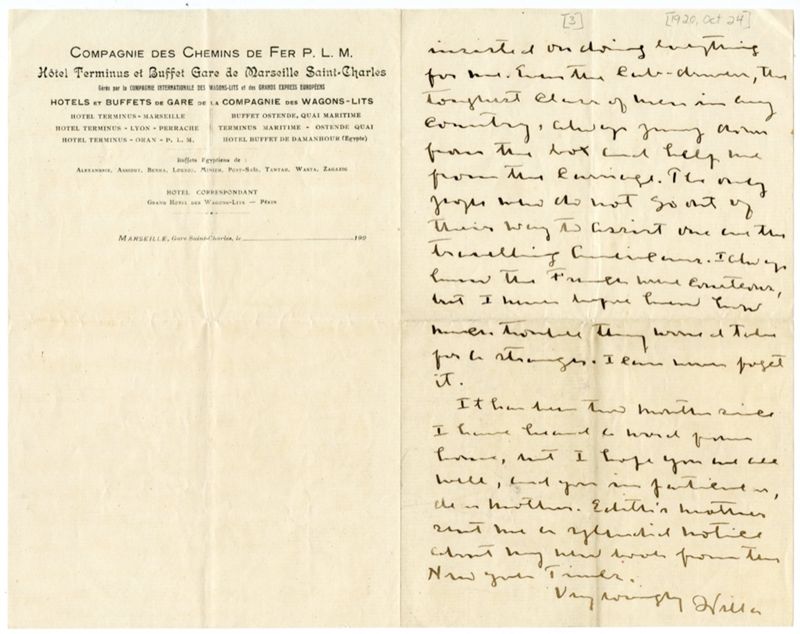 COMPAGNIE DES CHEMINS DE FER P. L. M.
Hôtel Terminus et Buffet Gare de Marseille Saint-Charles
Gérés par la COMPAGNIE INTERNATIONALE DES WAGONS-LITS et des GRANDS EXPRESS EUROPÉENS
HOTELS ET BUFFETS DE GARE DE LA COMPAGNIE DES WAGONS-LITS
HOTEL TERMINUS - MARSEILLE
HOTEL TERMINUS - LYON - PERRACHE
HOTEL TERMINUS - ORAN - P. L. M.
BUFFET OSTENDE, QUAI MARITIME
TERMINUS MARITIME - OSTENDE QUAI
HOTEL BUFFET DE DAMANHOUR (Egypte)
Buffets Egyptiens de :
ALEXANDRIE, ASSIOUT, BENHA, LOUXOR, MINIEH, PORT-SAÏD, TANTAH, WASTA, ZAGAZIG
HOTEL CORRESPONDANT
GRAND HOTEL DES WAGONS-LITS — PÉKIN
MARSEILLE, Gare Saint-Charles, le 190
[3]
[1920, Oct 24]
insisted on doing everything
for me. Even the cab-drivers, the
toughest class of men in any
country, always jump down
from the box and help me
from the carriage. The only
people who do not go out of
their way to assist one are the
travelling Americans. I always
knew the French were courteous,
but I never before knew how
much trouble they would take
for a stranger. I can never forget
it.
It has been two months since
I have heard a word from
home, but I hope you are all
well, and you in particular,
dear mother. Edith's mother
sent me a splendid notice
about my new book from the
New York Times.
Very lovingly
Willa